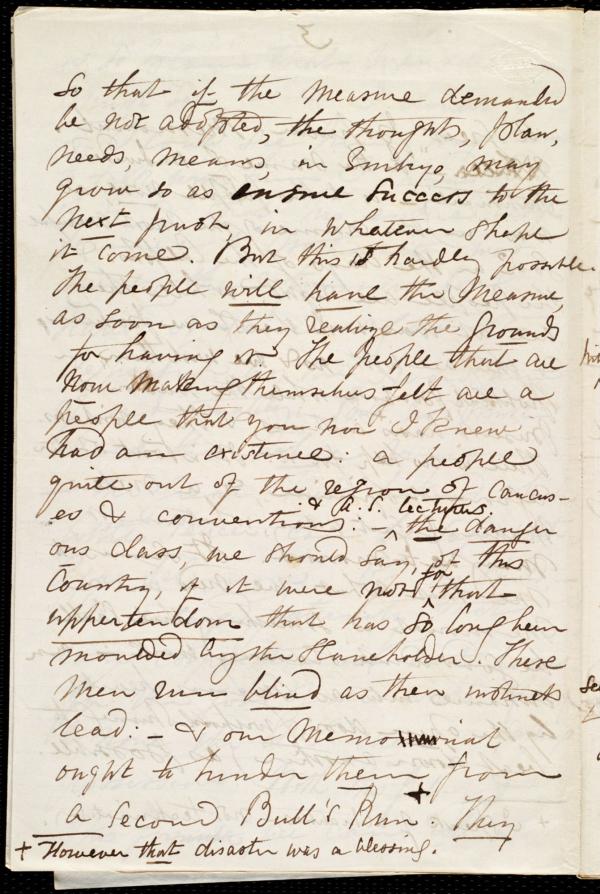 3
So that if the Measure demanded
be not adopted, the thoughts, plan,
needs, means, in Embryo, may
grow so as ensure Success to the
next push, in whatever shape
it come. But this is hardly possible.
The people will have the Measure,
as soon as they realize the grounds
for having it. The people that are
now making themselves felt are a
people that you nor I knew
had an existence: a people
quite out of the region of Caucus-
es & conventions & A. S. lectures: - the danger
ous class, we should say, of this
Country, if it were not for that
uppertendom that has so long been
moulded by the Slaveholder. These
men run blind as their instincts
lead: - & our Memorial
ought to hinder them from
a second Bull's Run +. They
+ However that disaster was a blessing.